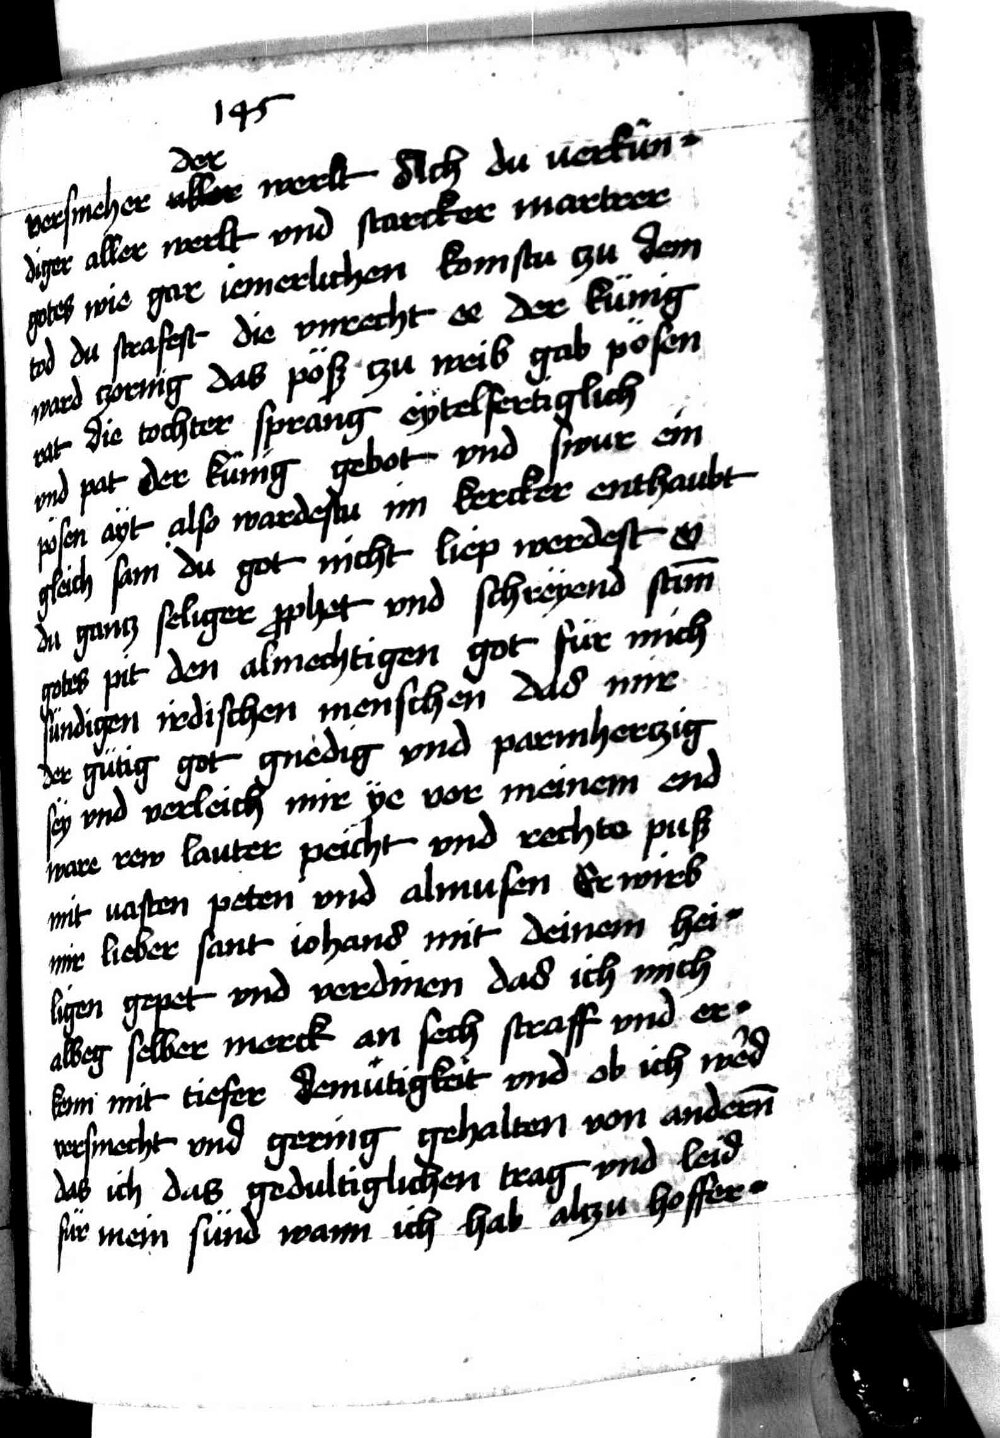 145
der
versmeher aller werlt Ach du uerkün-
diger aller werlt vnd starcker martrer
gotes wie gar iemerlichen komstu zu dem
tod du strafest die vnrecht ee der künig
ward zornig das pöß zu weib gab pösen
rat die tochter sprang eÿtelfertiglich
vnd pat der künig gebot vnd swur ein
pösen aÿt also wardestu im kercker enthaubt
gleich sam du got nicht liep werdest O
du gantz seliger prophet vnd schreÿend stim̄
gotes pit den almechtigen got für mich
sündigen irdischen menschen das mir
der gütig got gnedig vnd parmhertzig
seÿ vnd verleich mir ÿe vor meinem end
ware rew lauter peicht vnd rechte puß
mit uasten peten vnd almusen Erwirb
mir lieber sant iohans mit deinem hei-
ligen gepet vnd verdinen das ich mich
albeg selber merck an sech straff vnd er-
kenn mit tiefer demütigkeit vnd ob ich wêd
versmecht vnd gering gehalten von andern̄
das ich das gedultiglichen trag vnd leid
für mein sünd wann ich hab alzu hoffer-